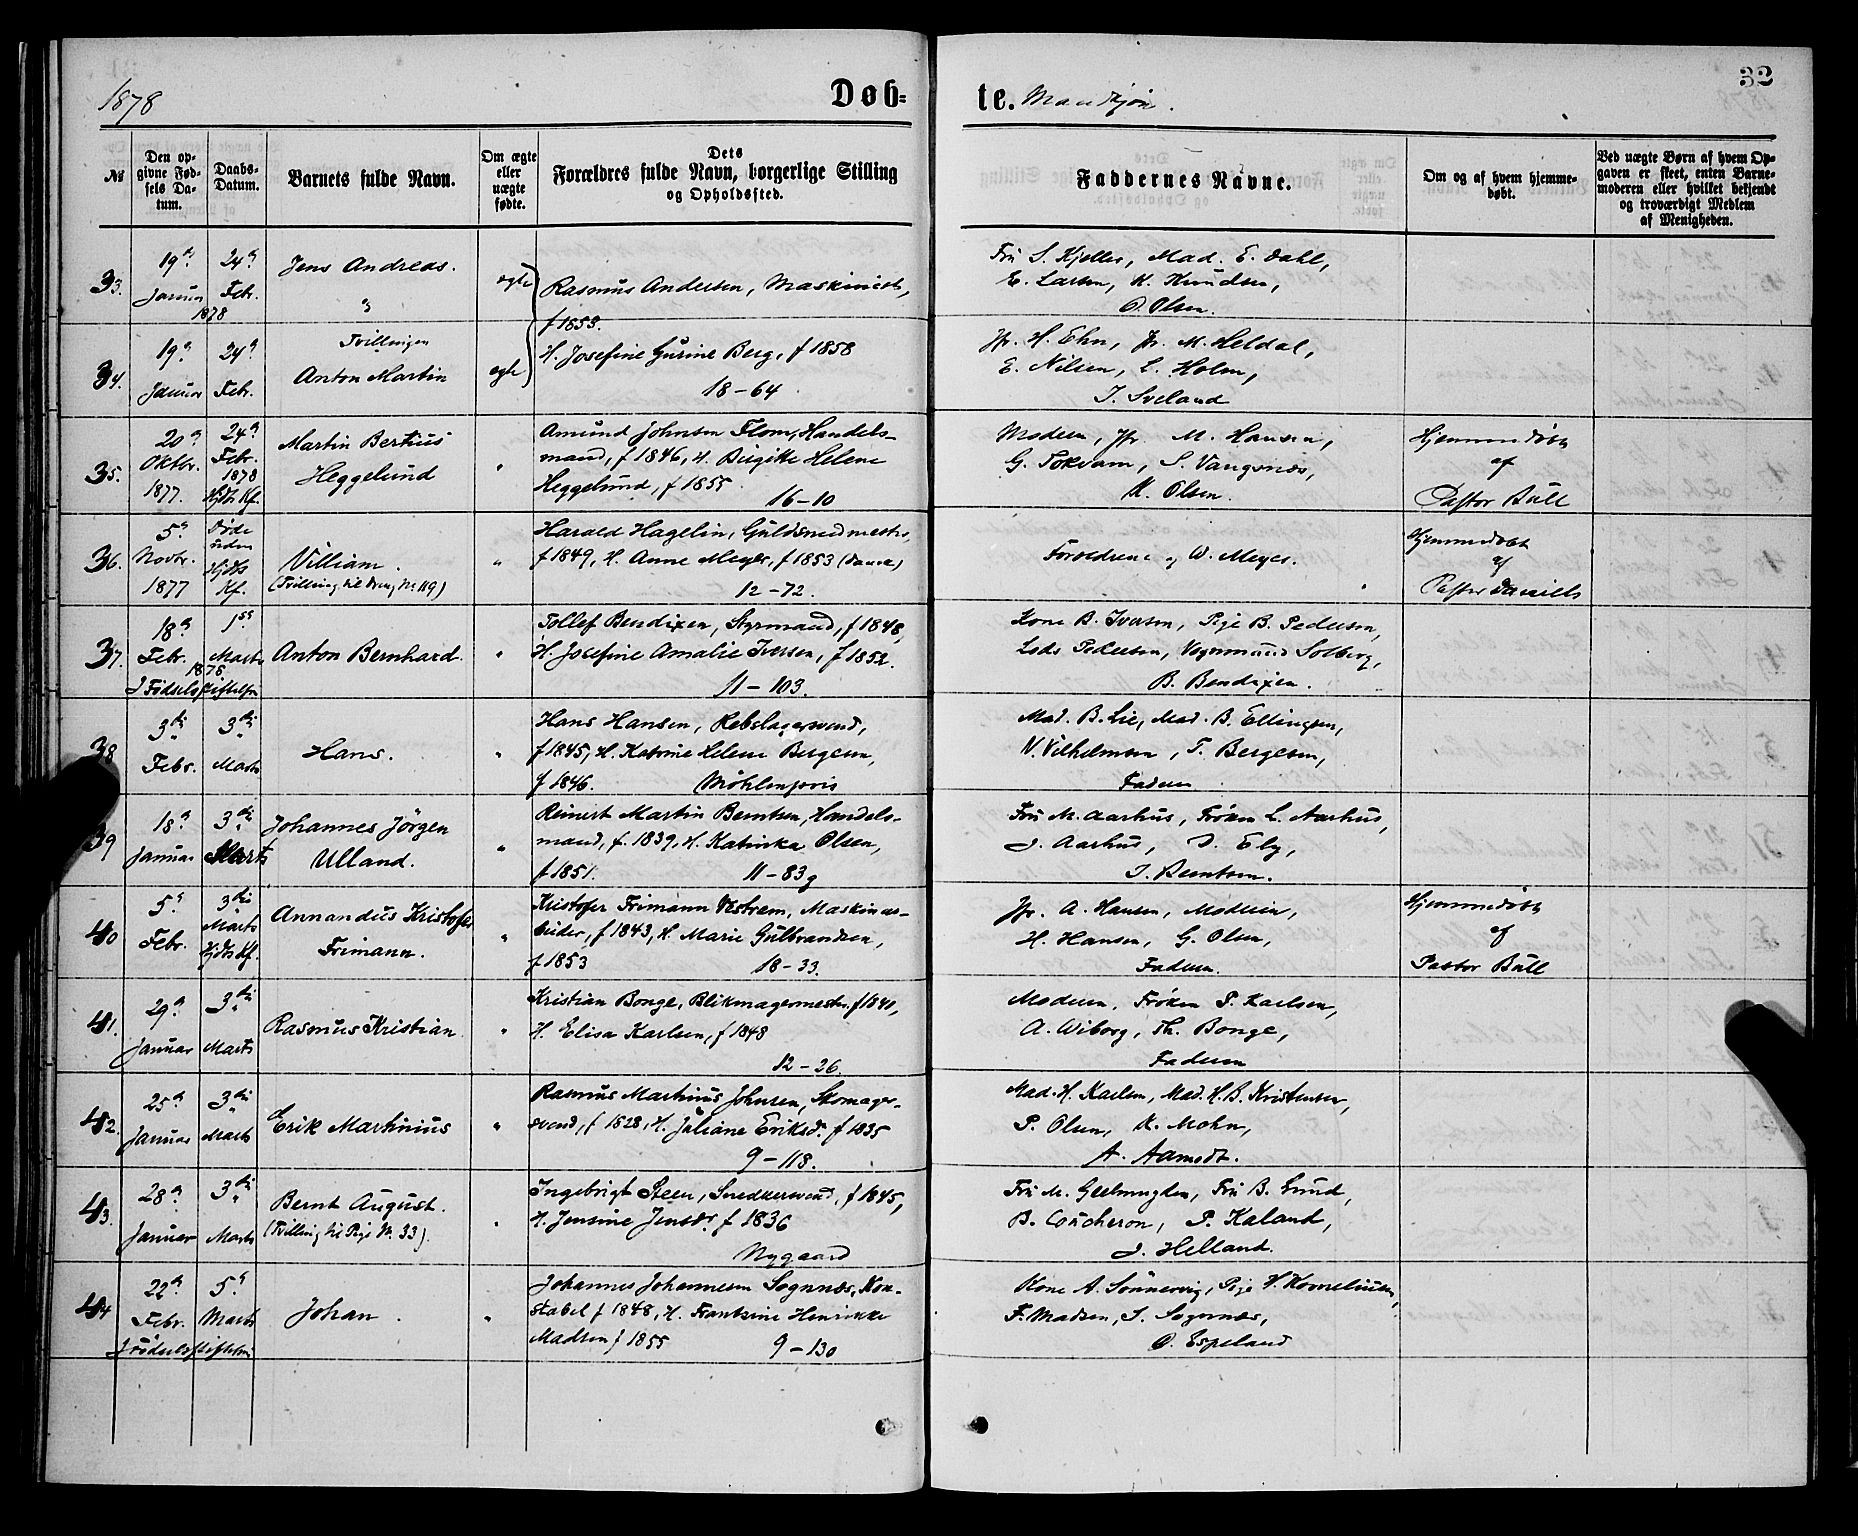 1878
Døb=
te. Mandkjøn.
32
№
Den opgivne Fødsels Datum.
Daabs-Datum.
Barnets fulde Navn.
Om ægte eller uægte fødte.
Dets Forældres fulde Navn, borgerlige Stilling og Opholdssted.
Faddernes Navne.
Om og af hvem hjemmedøbt.
Ved uægte Børn af hvem Opgaven er skeet, enten Barnemoderen eller hvilket bekjendt og troværdigt Medlem af Menigheden.
33.
19de Januar 1878
24de Febr.
Jens Andreas.
ægte
Rasmus Andersen, Maskinist,
f 1853.
Fru S. Kjeller, Mad. E. Dahl,
E. Larsen, K. Knudsen,
O. Olsen.
34.
19de Januar
24de Febr.
Tvillinger
Anton Martin
ægte
H. Josefine Gurine Berg, f 1858
18-64
Jfr. H. Ehn, Jfr. M. Heldal,
E. Nilsen, L. Holm,
J. Sveland
35.
20de Oktbr. 1877.
24de Febr. 1878
Martin Bertius
Heggelund
"
Amund Johnsen Flom, Handels-
mand, f 1846, H. Birgitte Helene
Heggelund, f 1855
16-10
Moderen, Jfr. M. Hansen,
G. Tokvam, S. Vangsnæs,
K. Olsen.
Hjemmedøbt
af
Pastor Bull
36.
5te Novbr. 1877
Døde uden
Villiam.
(Tvilling til Dreng Nr. 119)
"
Harald Hagelin, Guldsmedmester,
f 1849, H. Anne Meyer, f 1853
12-72.
Forældrene og W. Meyer.
Hjemmedøbt
af
Pastor Daniels
37.
18de Febr. 1878
1ste Marts
I Fødselsstiftelsen
Anton Bernhard.
"
Tollef Bendixen, Styrmand, f 1848,
H. Josefine Amalie Iversen, f 1852.
11-103.
Kone B. Iversen, Pige B. Pedersen,
Lods Pedersen, Vognmand Solberg,
B. Bendixen.
38
3die Febr.
3die Marts
Hans.
"
Hans Hansen, Rebslagersvend,
f 1845, H. Katrine Helene Bergesen,
f 1846.
Møhlenpris
Mad. B. Lie, Mad. B. Ellingsen,
N. Vilhelmsen, T. Bergesen,
Faderen
39
18de Januar
3die Marts
Johannes Jörgen
Ulland.
"
Reinert Martin Berntsen, Handels-
mand, f. 1839, H. Katinka Olsen,
f 1851.
11-83g
Fru M. Aarhus, Frøken L. Aarhus,
J. Aarhus, D. Eby,
J. Berntsen.
40
5te Febr.
3die Marts
Annandus Kristofer
Frimann.
"
Kristofer Frimann Vestrem, Maskinar-
beider, f 1843, H. Marie Gulbrandsen,
f 1853
18-33.
Jfr. A. Hansen, Moderen,
H. Hansen, G. Olsen,
Faderen.
Hjemmedøbt
af
Pastor Bull
41.
29de Januar
3die Marts
Rasmus Kristian
"
Kristian Bonge, Blikmagermester, f 1841,
H. Elisa Karlsen, f 1848
12-36.
Moderen, Frøken P. Karlsen,
A. Wiborg, Th. Bonge,
Faderen
42.
25de Januar
3die Marts
Erik Martinius
"
Rasmus Martinius Johnsen, Skomager-
svend, f 1828, H. Juliane Eriksd. f 1835
9-118.
Mad. H. Karlsen, Mad. H. B. Kristensen,
P. Olsen, K. Mohn,
A. Aamodt.
43.
28de Januar
3die Marts
Bernt August.
(Tvilling til Pige Nr. 33).
"
Ingebrigt Steen, Snedkersvend, f 1845,
H. Jensine Jensdr. f 1836
Nygaard
Fru M. Geelmuyden, Fru B. Lund,
B. Coucheron, P. Kaland,
J. Helland.
44
22de Febr.
5te Marts
I Fødselsstiftelsen
Johan.
"
Johannes Johannesen Sognnæs, Kon-
stabel f 1848, H. Frantsine Henrikke
Madsen f 1855
9-130
Kone A. Sönnervig, Pige H. Korneliusen,
F. Madsen, S. Sognnæs,
O. Espeland